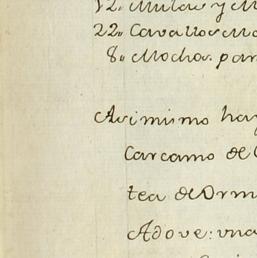 12.. Mulas y M
22.. Cavallos Mo
8.. Mochos par
Asimismo hay
Carcamo de
tea de Orm
Adove: una